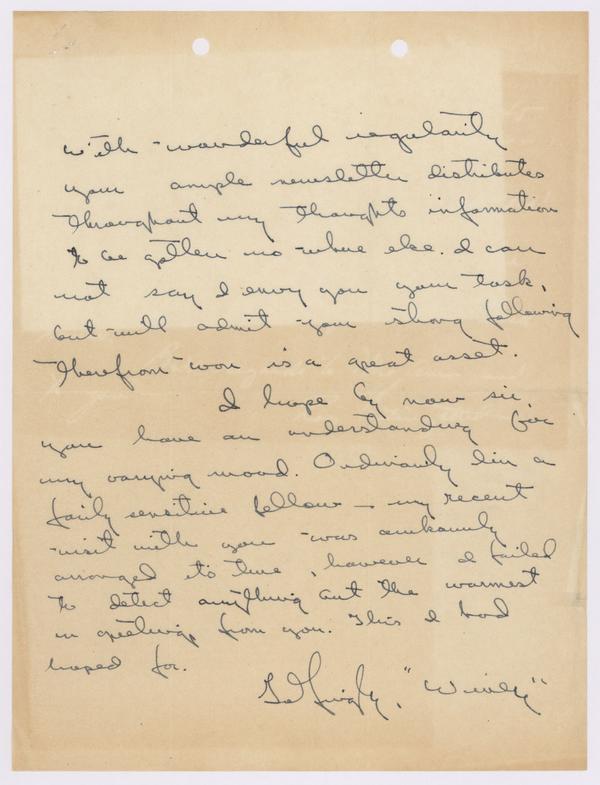 with wonderful regularity
your ample newsletter distributes
throughout my thoughts information
to be gotten no where else. I can
not say I envy you your task,
but will admit your strong following
therefrom won is a great asset.
I hope by now sir
you have an understanding for
my varying mood. Ordinarily I'm a
fairly sensitive fellow — my recent
visit with you was awkwardly
arranged it's true, however I failed
to detect anything but the warmest
in greetings from you. This I had
hoped for.
"Windy"